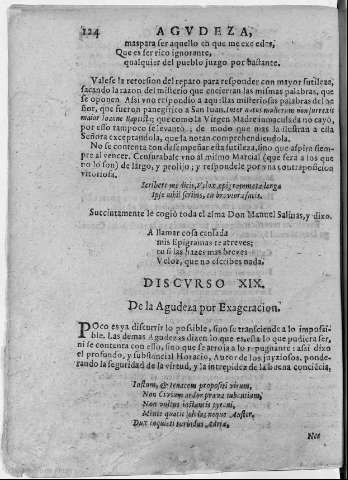 124 AGVDEZA,
maspara ser aquello en que me excedes,
Que es ser rico ignorante,
qualquier del pueblo juzgo por bastante.
Valese la retorsion del reparo para responder con mayor sutileza,
sacando la razon del misterio que encierran las mismas palabras, que
se oponen. Assi vno respondio a aquellas misteriosas palabras del Se
ñor, que fueron panegirico a San Iuan, Inter natos mulierum non surrexit
maior Ioanne Baptista; que como la Virgen Madre inmaculada no cayò,
por esso tampoco se levantò; de modo que mas la ilustran a esta
Señora exceptandola, que la notan comprehendiendola.
No se contenta con desempeñar esta sutileza, sino que aspira siem-
pre al vencer. Censurabale vno al mismo Marcial (que serà a los que
no lo son) de largo, y prolijo; y respondele por vna contraposicion
vitoriosa.
Scribere me dicis, Velox, epigrammata longa
Ipse nihil scribis, tu breviora facis.
Succintamente le cogiò toda el alma Don Manuel Salinas, y dixo.
A llamar cosa cansada
mis Epigramas te atreves;
tu si las hazes mas breves
Veloz, que no escribes nada.
DISCVRSO XIX.
De la Agudeza por Exageracion.
POco es ya discurrir lo possible, sino se transciende a lo impossi-
ble. Las demas Agudezas dizen lo que es, esta lo que pudiera ser,
ni se contenta con esso, sino que se arroja a lo repugnante: assi dixo
el profundo, y substancial Horacio, Autor de los juyziosos, ponde-
rando la seguridad de la virtud, y la intrepidez de la buena conciēcia,
Iustum, & tenacem propositi virum,
Non Civium ardor prava iubentium,
Non vultus instantis tyrani,
Mente quatit solida, neque Auster,
Dux inquieti turbidus Adria,
Nec